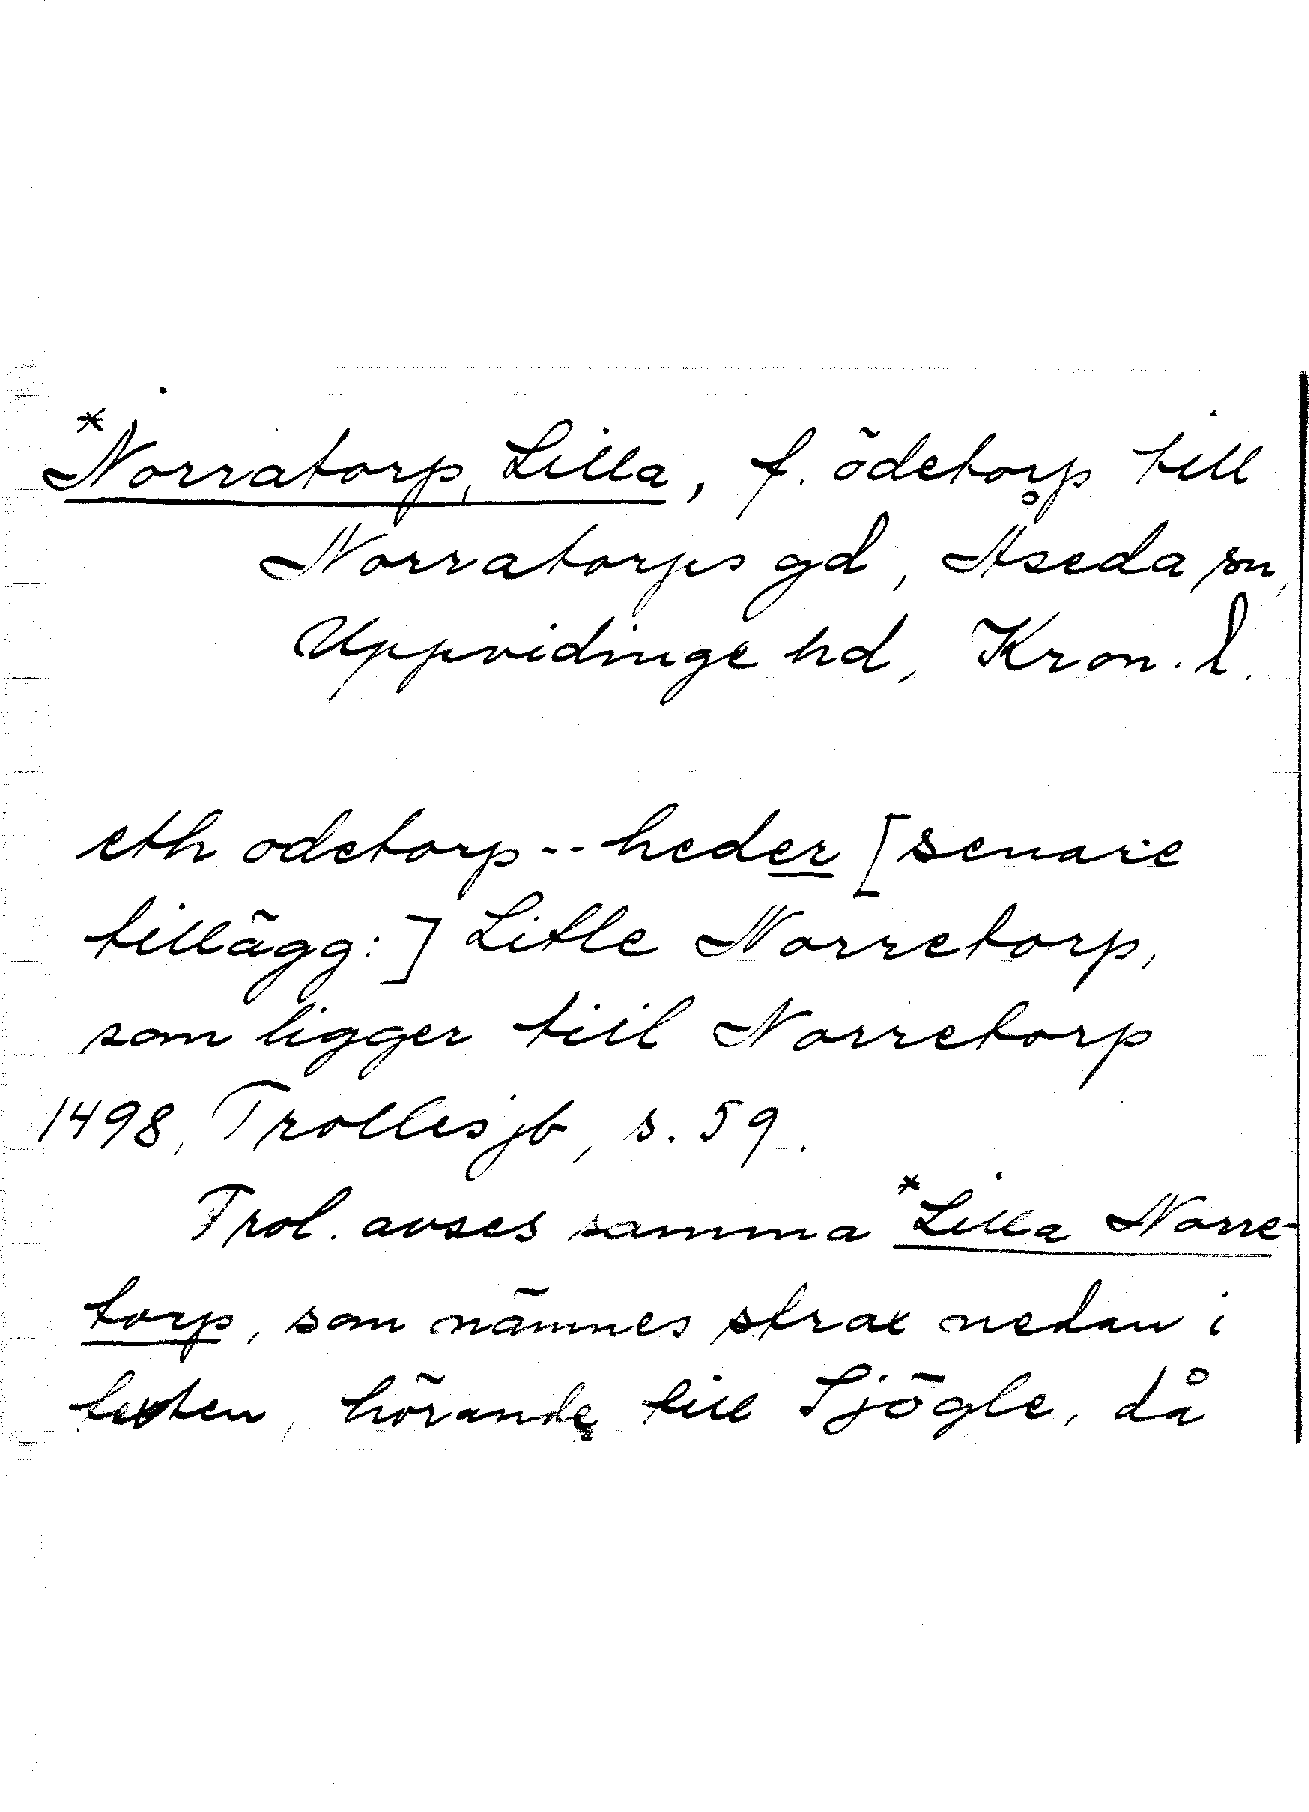 *Norratorp, Lilla, f. ödetorp till
Norratorps gd, Åseda sn,
Uppvidinge hd, Kron. l.
eth odetorp -- heder [senare
tillägg:] Litle Norretorp,
som ligger till Norretorp
1498, Trolles jb, s. 59.
Trol. avses samma *Lilla Norre-
torp, som nämnes strax nedan i
texten, hörande till Sjögle, då